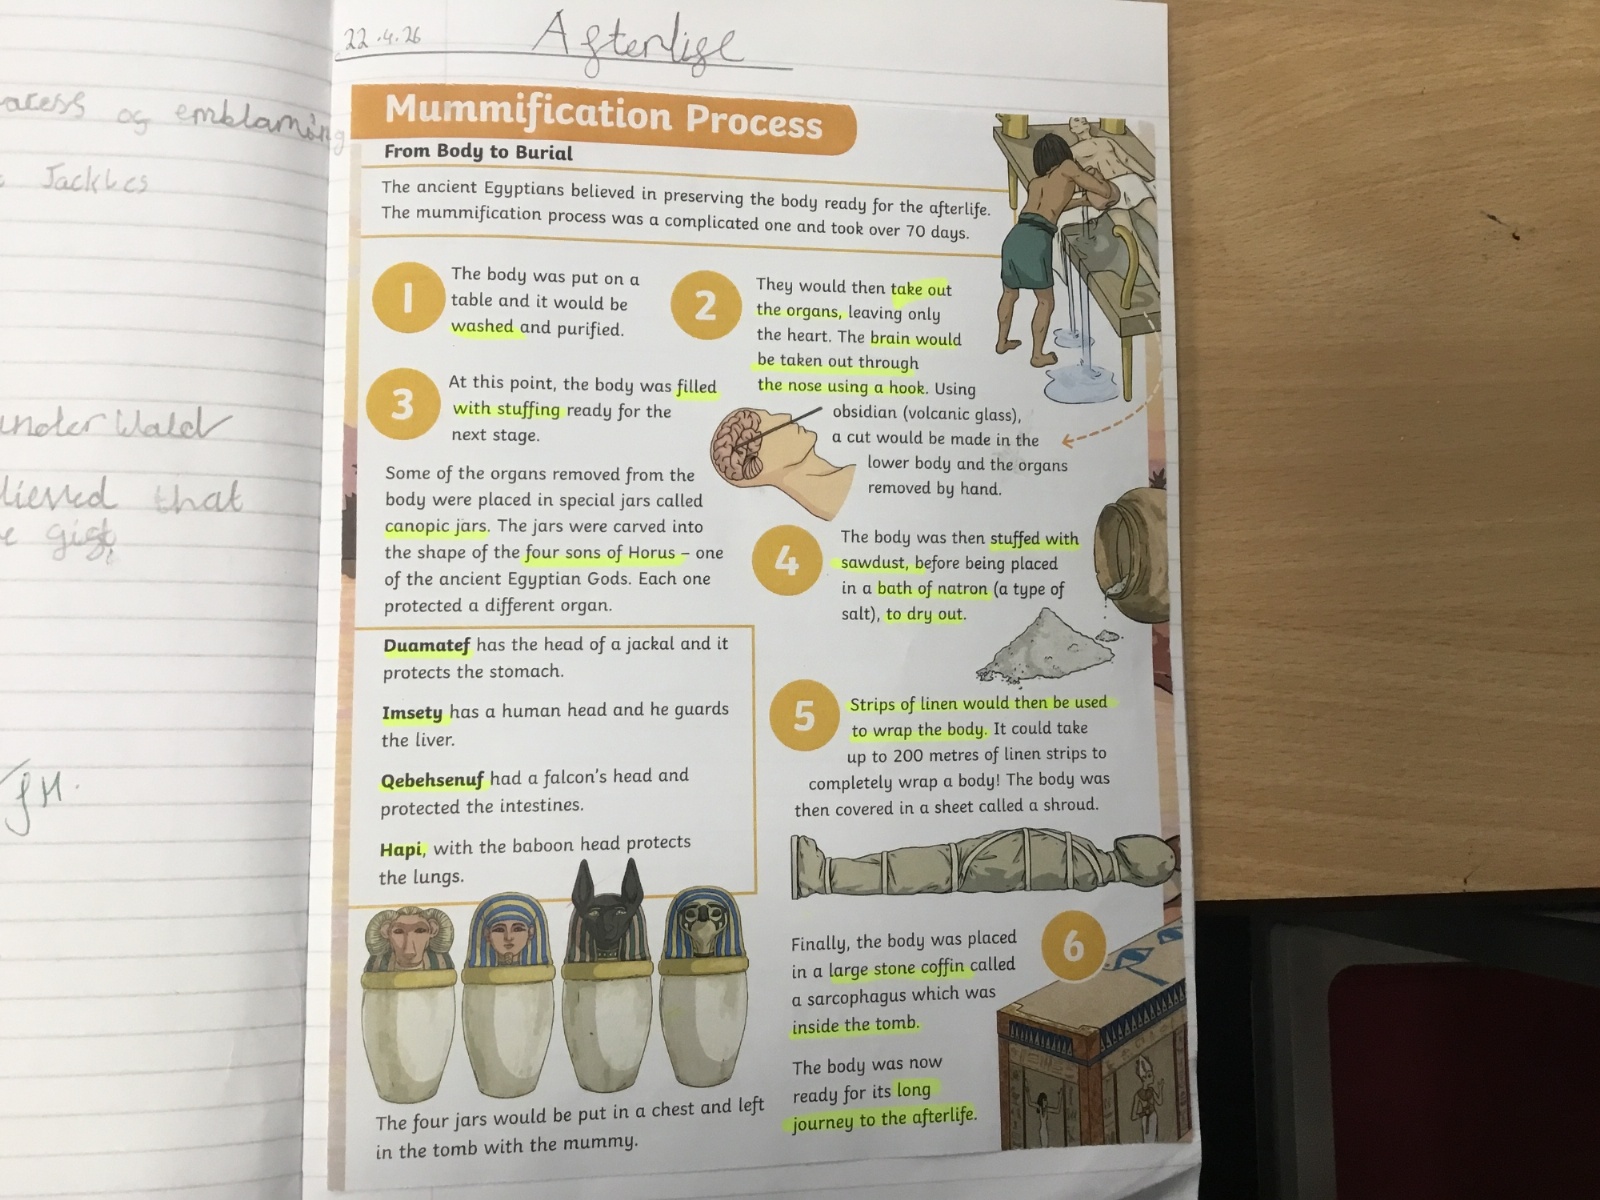 acess og emblaming
Jackles
under Wald
lieved that
e gist
JM.
22.4.26
Afterlige
Mummification Process
From Body to Burial
The ancient Egyptians believed in preserving the body ready for the afterlife.
The mummification process was a complicated one and took over 70 days.
1
The body was put on a
table and it would be
washed and purified.
2
They would then take out
the organs, leaving only
the heart. The brain would
be taken out through
the nose using a hook. Using
obsidian (volcanic glass),
a cut would be made in the
lower body and the organs
removed by hand.
3
At this point, the body was filled
with stuffing ready for the
next stage.
Some of the organs removed from the
body were placed in special jars called
canopic jars. The jars were carved into
the shape of the four sons of Horus – one
of the ancient Egyptian Gods. Each one
protected a different organ.
Duamatef has the head of a jackal and it
protects the stomach.
Imsety has a human head and he guards
the liver.
Qebehsenuf had a falcon's head and
protected the intestines.
Hapi, with the baboon head protects
the lungs.
The four jars would be put in a chest and left
in the tomb with the mummy.
4
The body was then stuffed with
sawdust, before being placed
in a bath of natron (a type of
salt), to dry out.
5
Strips of linen would then be used
to wrap the body. It could take
up to 200 metres of linen strips to
completely wrap a body! The body was
then covered in a sheet called a shroud.
6
Finally, the body was placed
in a large stone coffin called
a sarcophagus which was
inside the tomb.
The body was now
ready for its long
journey to the afterlife.